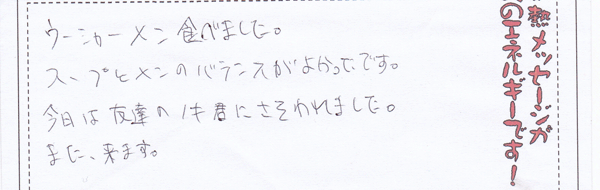 ウーシャーメン食べました。
スープとメンのバランスがよかったです。
今日は友達のノキ君にさそわれました。
また、来ます。
熱メッセージが
のエネルギーです!